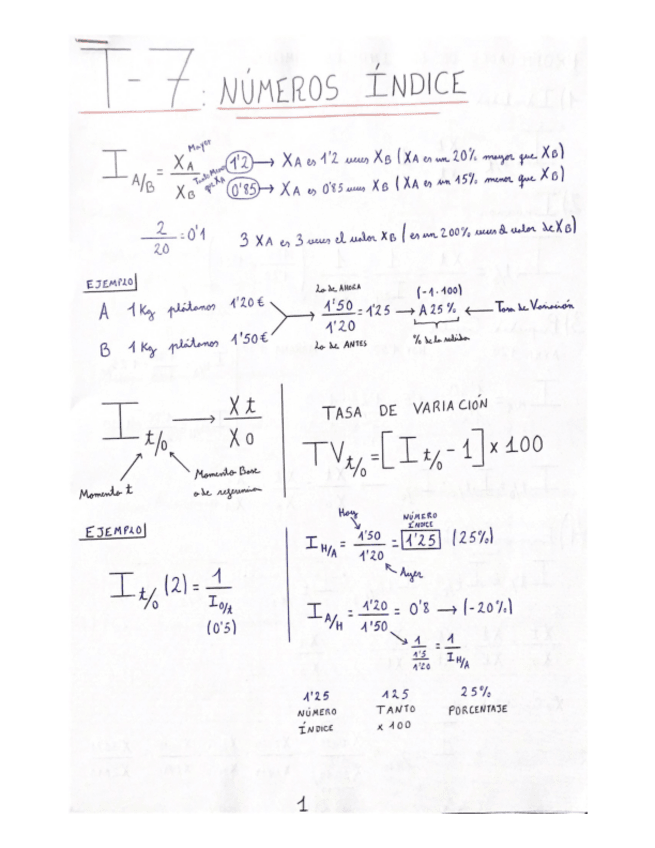 T-7: NÚMEROS ÍNDICE
Mayor
I A/B = XA / XB
1'2 → XA es 1'2 veces XB (XA es un 20% mayor que XB)
0'85 → XA es 0'85 veces XB (XA es un 15% menor que XB)
2/20 = 0'1
3 XA es 3 veces el valor XB (es un 200% veces el valor de XB)
EJEMPLO
A 1 Kg plátanos 1'20 €
B 1 Kg plátanos 1'50 €
Lo de AHORA
(-1·100)
1'50 / 1'20 = 1'25 → A 25% ← Tasa de Variación
Lo de ANTES
% de la subida
I t/0 → Xt / X0
Momento t
Momento Base
o de referencia
TASA DE VARIACIÓN
TV t/0 = [I t/0 - 1] x 100
EJEMPLO
I t/0 (2) = 1 / I 0/t
(0'5)
Hoy
NÚMERO
ÍNDICE
I H/A = 1'50 / 1'20 = 1'25 (25%)
Ayer
I A/H = 1'20 / 1'50 = 0'8 → (-20%)
1 / (1'5 / 1'20) = 1 / I H/A
1'25 125 25%
NÚMERO TANTO PORCENTAJE
ÍNDICE x 100
1